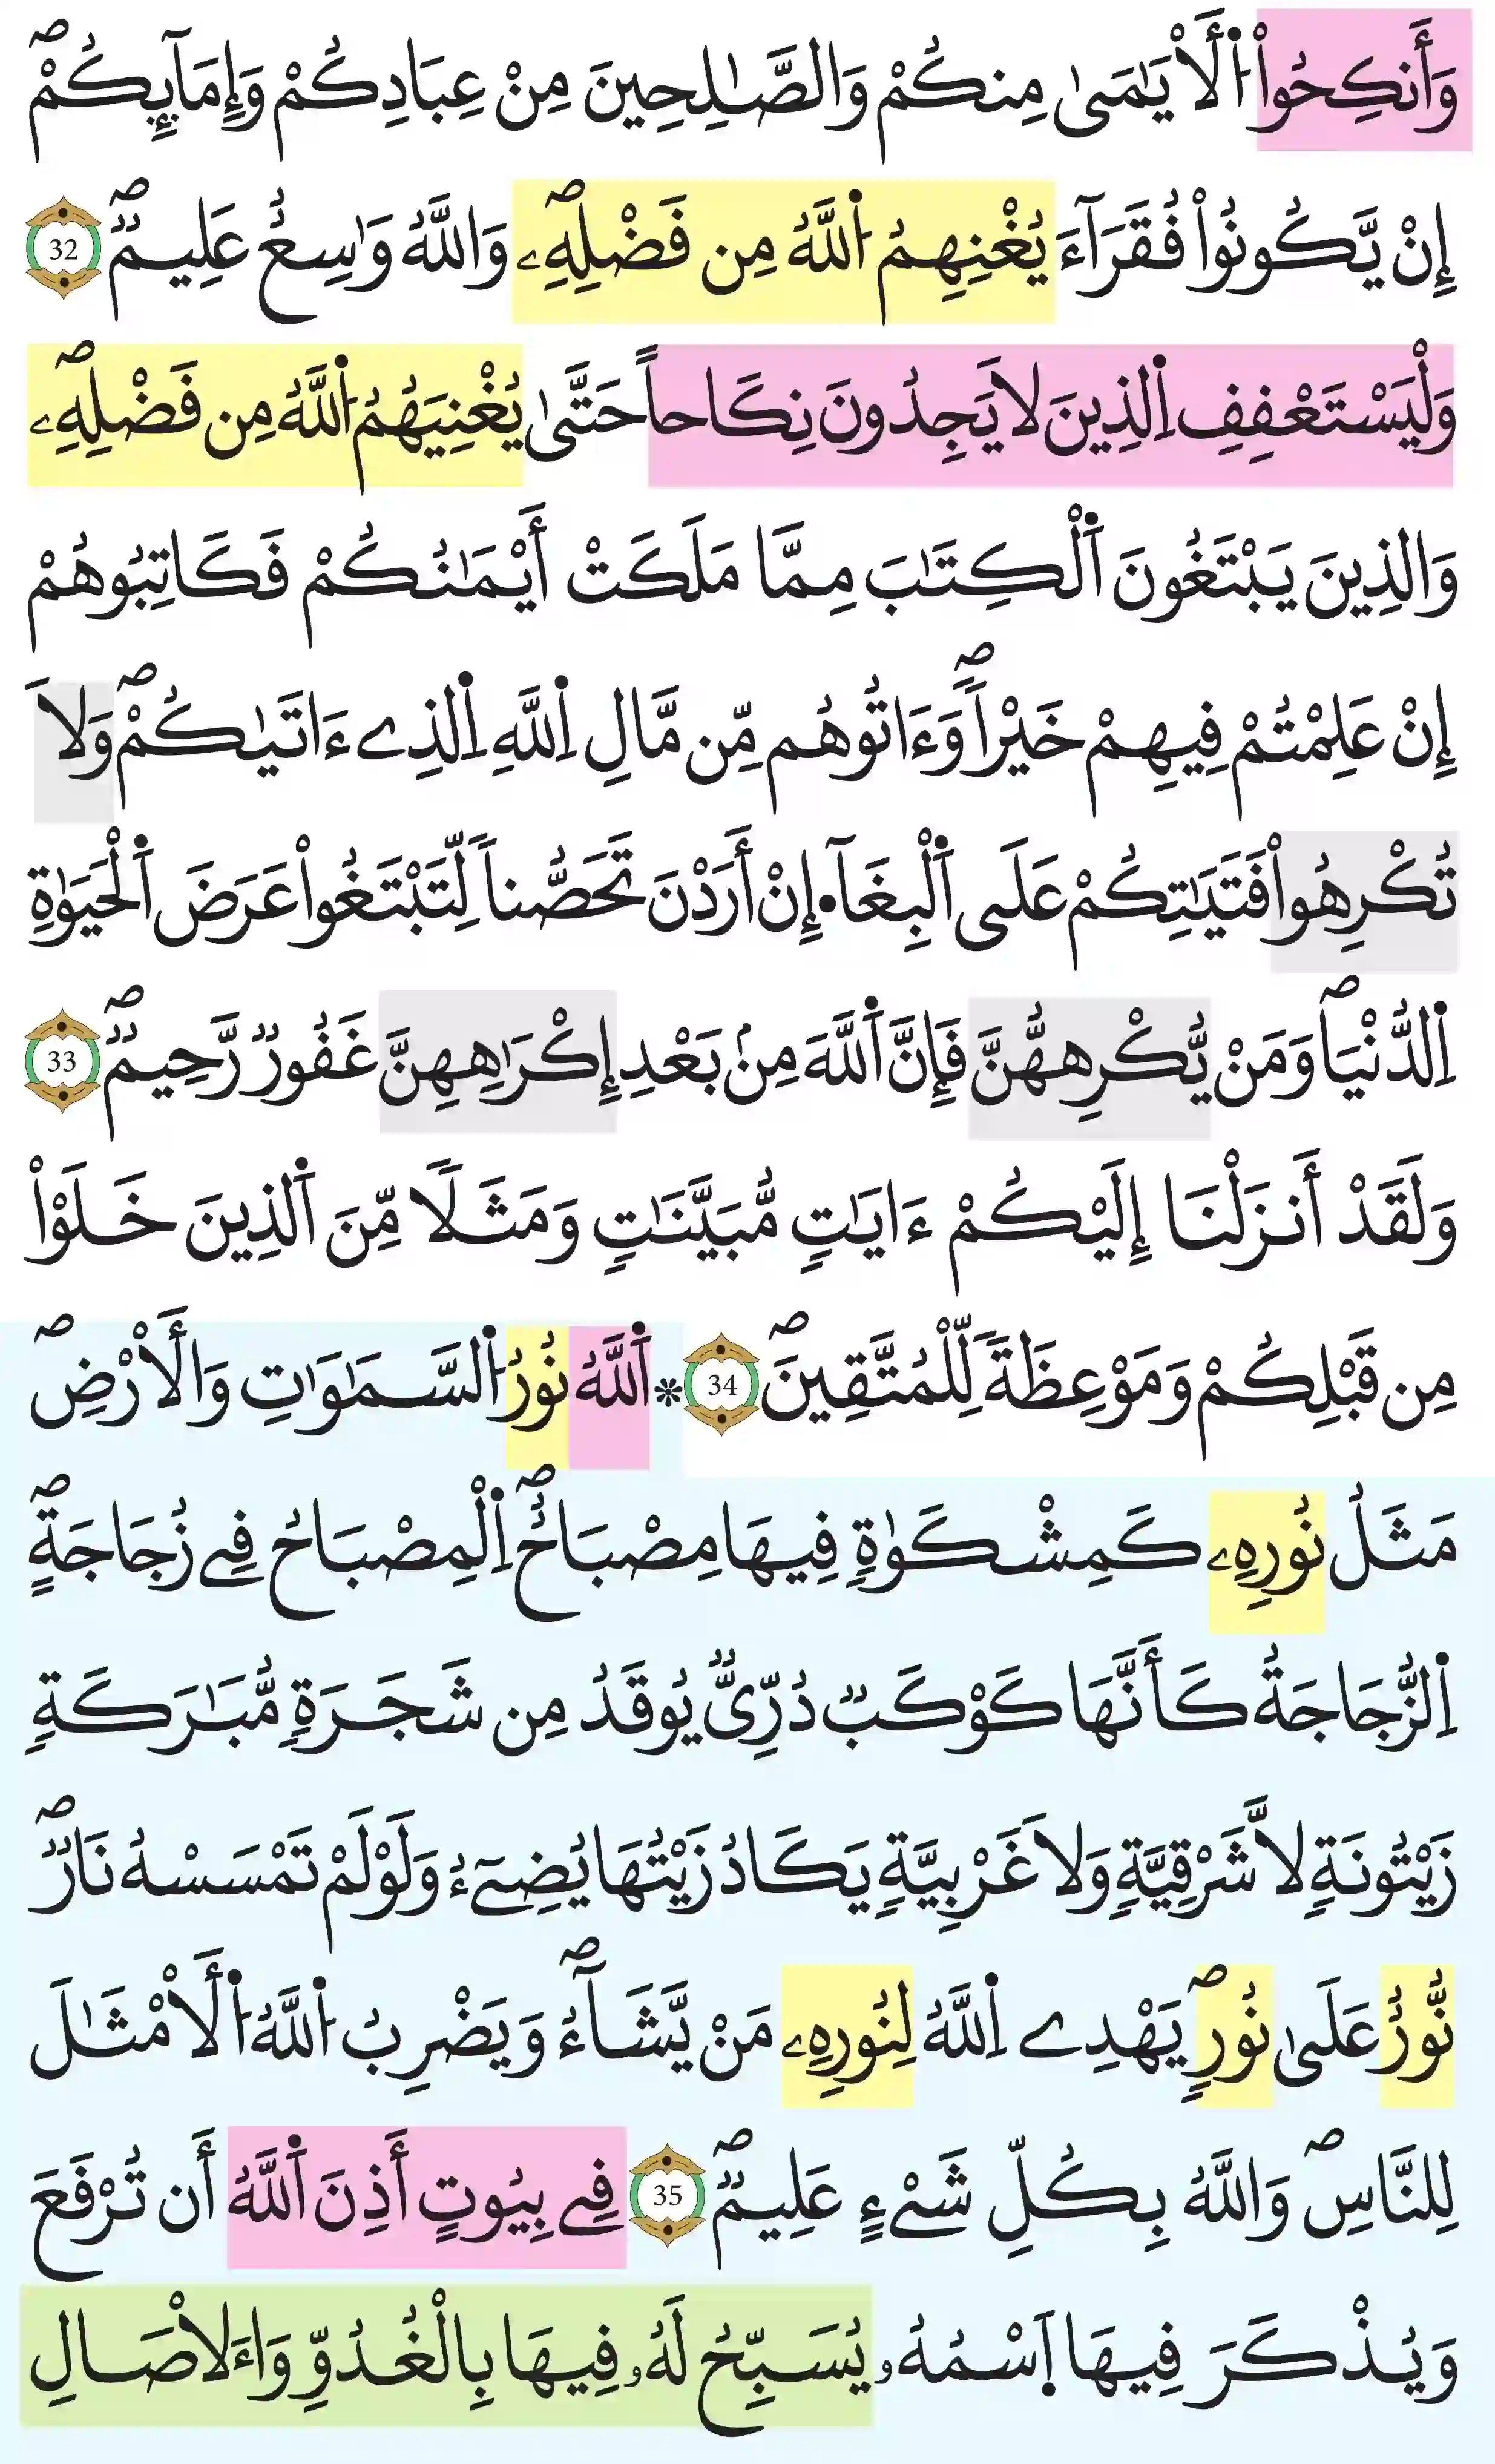 وَأَنكِحُواْ اُ۬لْأَيَٰمَىٰ مِنكُمْ وَالصَّٰلِحِينَ مِنْ عِبَادِكُمْ وَإِمَآئِكُمْۖ
إِنْ يَّكُونُواْ فُقَرَآءَ يُغْنِهِمُ اُ۬للَّهُ مِن فَضْلِهِۦۖ وَاللَّهُ وَٰسِعٌ عَلِيمٞۖ 32
وَلْيَسْتَعْفِفِ اِ۬لذِينَ لَا يَجِدُونَ نِكَاحاً حَتَّىٰ يُغْنِيَهُمُ اُ۬للَّهُ مِن فَضْلِهِۦۖ
وَالذِينَ يَبْتَغُونَ اَ۬لْكِتَٰبَ مِمَّا مَلَكَتْ أَيْمَٰنُكُمْ فَكَاتِبُوهُمْ
إِنْ عَلِمْتُمْ فِيهِمْ خَيْراٗۖ وَءَاتُوهُم مِّن مَّالِ اِ۬للَّهِ اِ۬لذِے ءَاتَيٰكُمْۖ وَلَا
تُكْرِهُواْ فَتَيَٰتِكُمْ عَلَى اَ۬لْبِغَآ۪ءِ انْ أَرَدْنَ تَحَصُّناٗ لِّتَبْتَغُواْ عَرَضَ اَ۬لْحَيَوٰةِ
اِ۬لدُّنْيَاۖ وَمَنْ يُّكْرِههُّنَّ فَإِنَّ اَ۬للَّهَ مِنۢ بَعْدِ إِكْرَٰهِهِنَّ غَفُورٞ رَّحِيمٞۖ 33
وَلَقَدْ أَنزَلْنَا إِلَيْكُمْ ءَايَٰتٖ مُّبَيَّنَٰتٖ وَمَثَلٗا مِّنَ اَ۬لذِينَ خَلَوْاْ
مِن قَبْلِكُمْ وَمَوْعِظَةٗ لِّلْمُتَّقِينَۖ 34 ۞ اَ۬للَّهُ نُورُ اُ۬لسَّمَٰوَٰتِ وَالْأَرْضِۖ
مَثَلُ نُورِهِۦ كَمِشْكَوٰةٖ فِيهَا مِصْبَاحٌۖ اِ۬لْمِصْبَاحُ فِے زُجَاجَةٍۖ
اِ۬لزُّجَاجَةُ كَأَنَّهَا كَوْكَبٞ دُرِّيّٞ يُوقَدُ مِن شَجَرَةٖ مُّبَٰرَكَةٖ
زَيْتُونَةٖ لَّا شَرْقِيَّةٖ وَلَا غَرْبِيَّةٖ يَكَادُ زَيْتُهَا يُضِےٓءُ وَلَوْ لَمْ تَمْسَسْهُ نَارٞۖ
نُّورٌ عَلَىٰ نُورٖۖ يَهْدِے اِ۬للَّهُ لِنُورِهِۦ مَنْ يَّشَآءُۖ وَيَضْرِبُ اُ۬للَّهُ اُ۬لْأَمْثَٰلَ
لِلنَّاسِۖ وَاللَّهُ بِكُلِّ شَےْءٍ عَلِيمٞۖ 35 فِے بِيُوتٍ أَذِنَ اَ۬للَّهُ أَن تُرْفَعَ
وَيُذْكَرَ فِيهَا اَ۪سْمُهُۥ يُسَبِّحُ لَهُۥ فِيهَا بِالْغُدُوِّ وَاءَلَاصَالِ